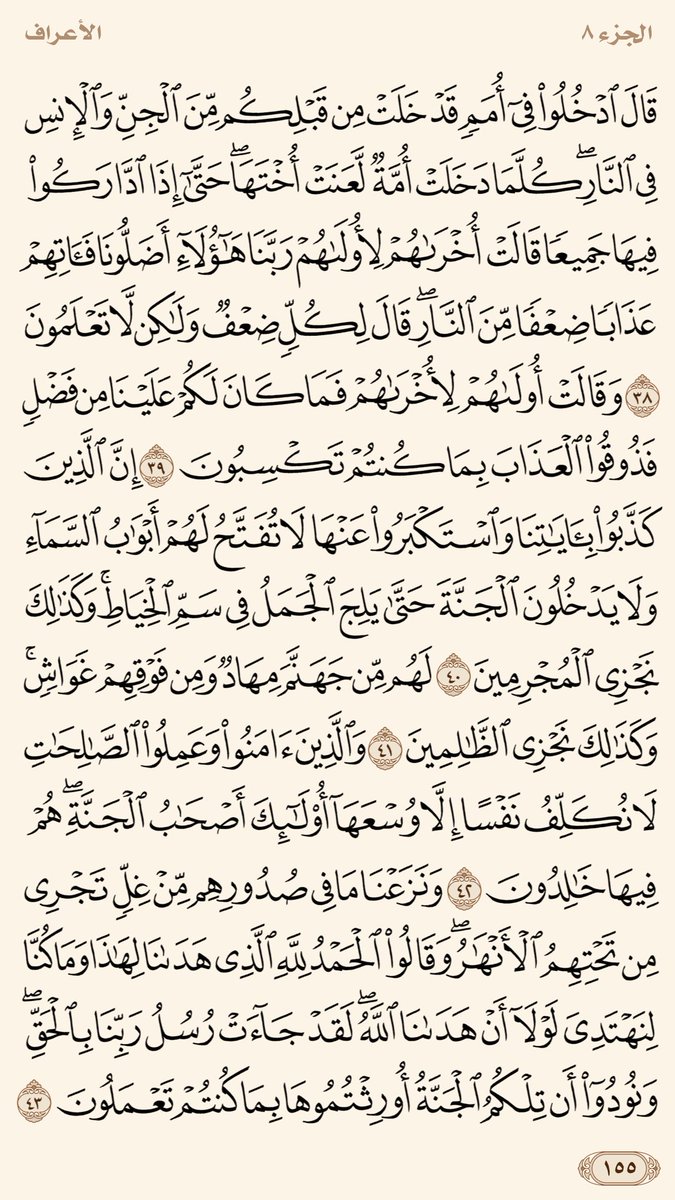 الجزء ٨ الأعراف
قَالَ ٱدۡخُلُواْ فِيٓ أُمَمٖ قَدۡ خَلَتۡ مِن قَبۡلِكُم مِّنَ ٱلۡجِنِّ وَٱلۡإِنسِ
فِي ٱلنَّارِۖ كُلَّمَا دَخَلَتۡ أُمَّةٞ لَّعَنَتۡ أُخۡتَهَاۖ حَتَّىٰٓ إِذَا ٱدَّارَكُواْ
فِيهَا جَمِيعٗا قَالَتۡ أُخۡرَىٰهُمۡ لِأُولَىٰهُمۡ رَبَّنَا هَٰٓؤُلَآءِ أَضَلُّونَا فَـَٔاتِهِمۡ
عَذَابٗا ضِعۡفٗا مِّنَ ٱلنَّارِۖ قَالَ لِكُلّٖ ضِعۡفٞ وَلَٰكِن لَّا تَعۡلَمُونَ
٣٨ وَقَالَتۡ أُولَىٰهُمۡ لِأُخۡرَىٰهُمۡ فَمَا كَانَ لَكُمۡ عَلَيۡنَا مِن فَضۡلٖ
فَذُوقُواْ ٱلۡعَذَابَ بِمَا كُنتُمۡ تَكۡسِبُونَ ٣٩ إِنَّ ٱلَّذِينَ
كَذَّبُواْ بِـَٔايَٰتِنَا وَٱسۡتَكۡبَرُواْ عَنۡهَا لَا تُفَتَّحُ لَهُمۡ أَبۡوَٰبُ ٱلسَّمَآءِ
وَلَا يَدۡخُلُونَ ٱلۡجَنَّةَ حَتَّىٰ يَلِجَ ٱلۡجَمَلُ فِي سَمِّ ٱلۡخِيَاطِۚ وَكَذَٰلِكَ
نَجۡزِي ٱلۡمُجۡرِمِينَ ٤٠ لَهُم مِّن جَهَنَّمَ مِهَادٞ وَمِن فَوۡقِهِمۡ غَوَاشٖۚ
وَكَذَٰلِكَ نَجۡزِي ٱلظَّٰلِمِينَ ٤١ وَٱلَّذِينَ ءَامَنُواْ وَعَمِلُواْ ٱلصَّٰلِحَٰتِ
لَا نُكَلِّفُ نَفۡسًا إِلَّا وُسۡعَهَآ أُوْلَٰٓئِكَ أَصۡحَٰبُ ٱلۡجَنَّةِۖ هُمۡ
فِيهَا خَٰلِدُونَ ٤٢ وَنَزَعۡنَا مَا فِي صُدُورِهِم مِّنۡ غِلّٖ تَجۡرِي
مِن تَحۡتِهِمُ ٱلۡأَنۡهَٰرُۖ وَقَالُواْ ٱلۡحَمۡدُ لِلَّهِ ٱلَّذِي هَدَىٰنَا لِهَٰذَا وَمَا كُنَّا
لِنَهۡتَدِيَ لَوۡلَآ أَنۡ هَدَىٰنَا ٱللَّهُۖ لَقَدۡ جَآءَتۡ رُسُلُ رَبِّنَا بِٱلۡحَقِّۖ
وَنُودُوٓاْ أَن تِلۡكُمُ ٱلۡجَنَّةُ أُورِثۡتُمُوهَا بِمَا كُنتُمۡ تَعۡمَلُونَ ٤٣
١٥٥